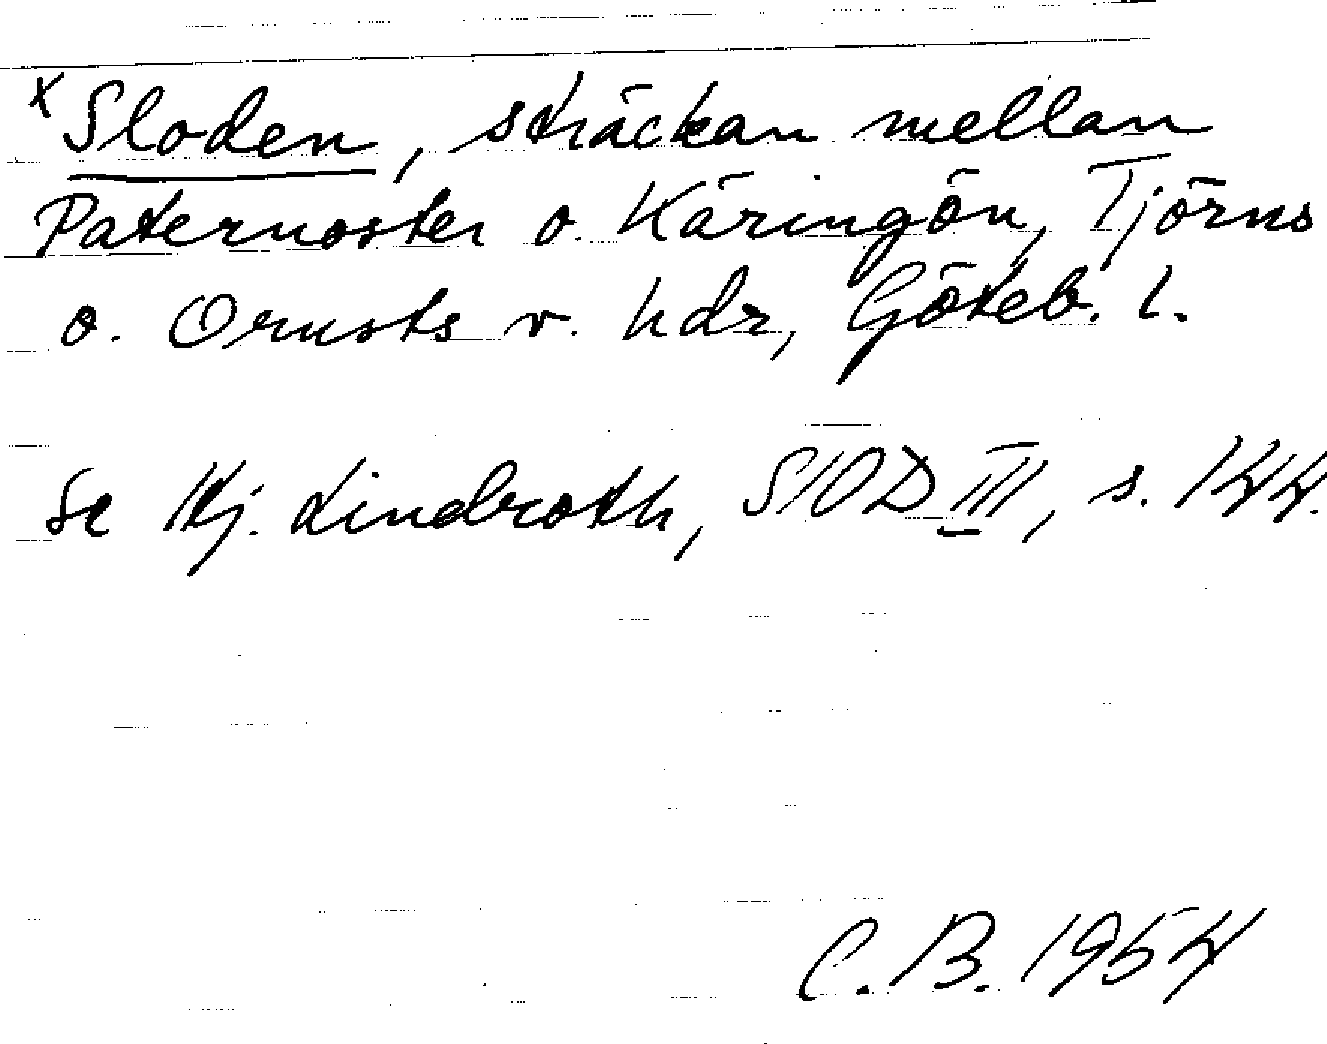 x Sloden, sträckan mellan
Paternoster o. Käringön, Tjörns
o. Orusts v. hdr, Göteb. l.
Se Hj. Lindroth, SIOD III, s. 144.
C. B. 1954